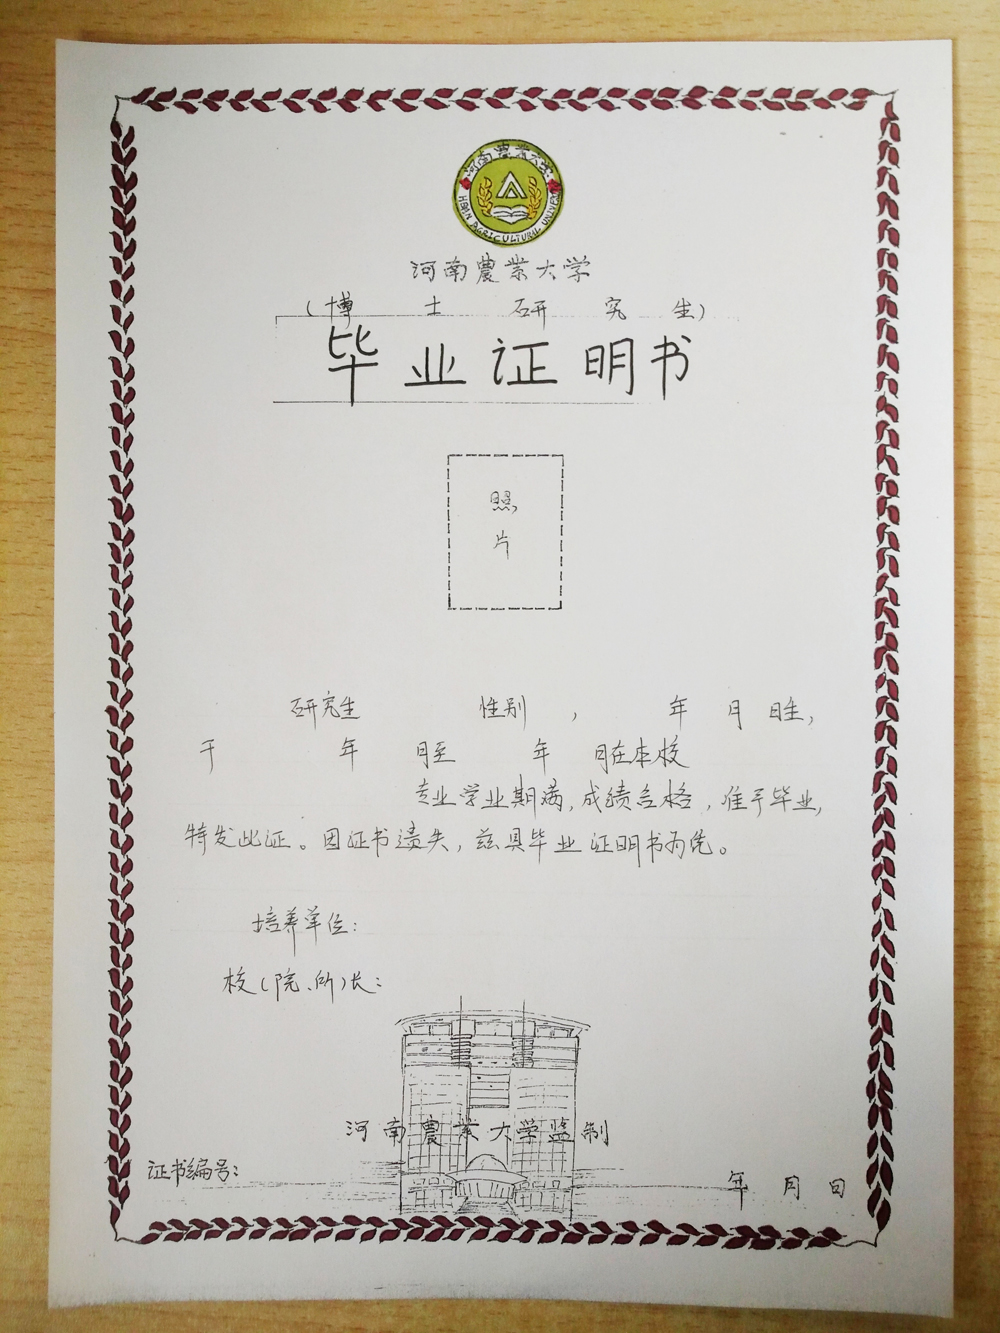 河南農業大学
HENAN AGRICULTURAL UNIVER
河南農業大学
（博士研究生）
毕业证明书
照
片
研究生 性别 ， 年 月 日生，
于 年 月至 年 月在本校
专业学业期满，成绩合格，准予毕业，
特发此证。因证书遗失，兹具毕业证明书为凭。
培养单位：
校（院、所）长：
河南農業大学监制
证书编号：
年 月 日